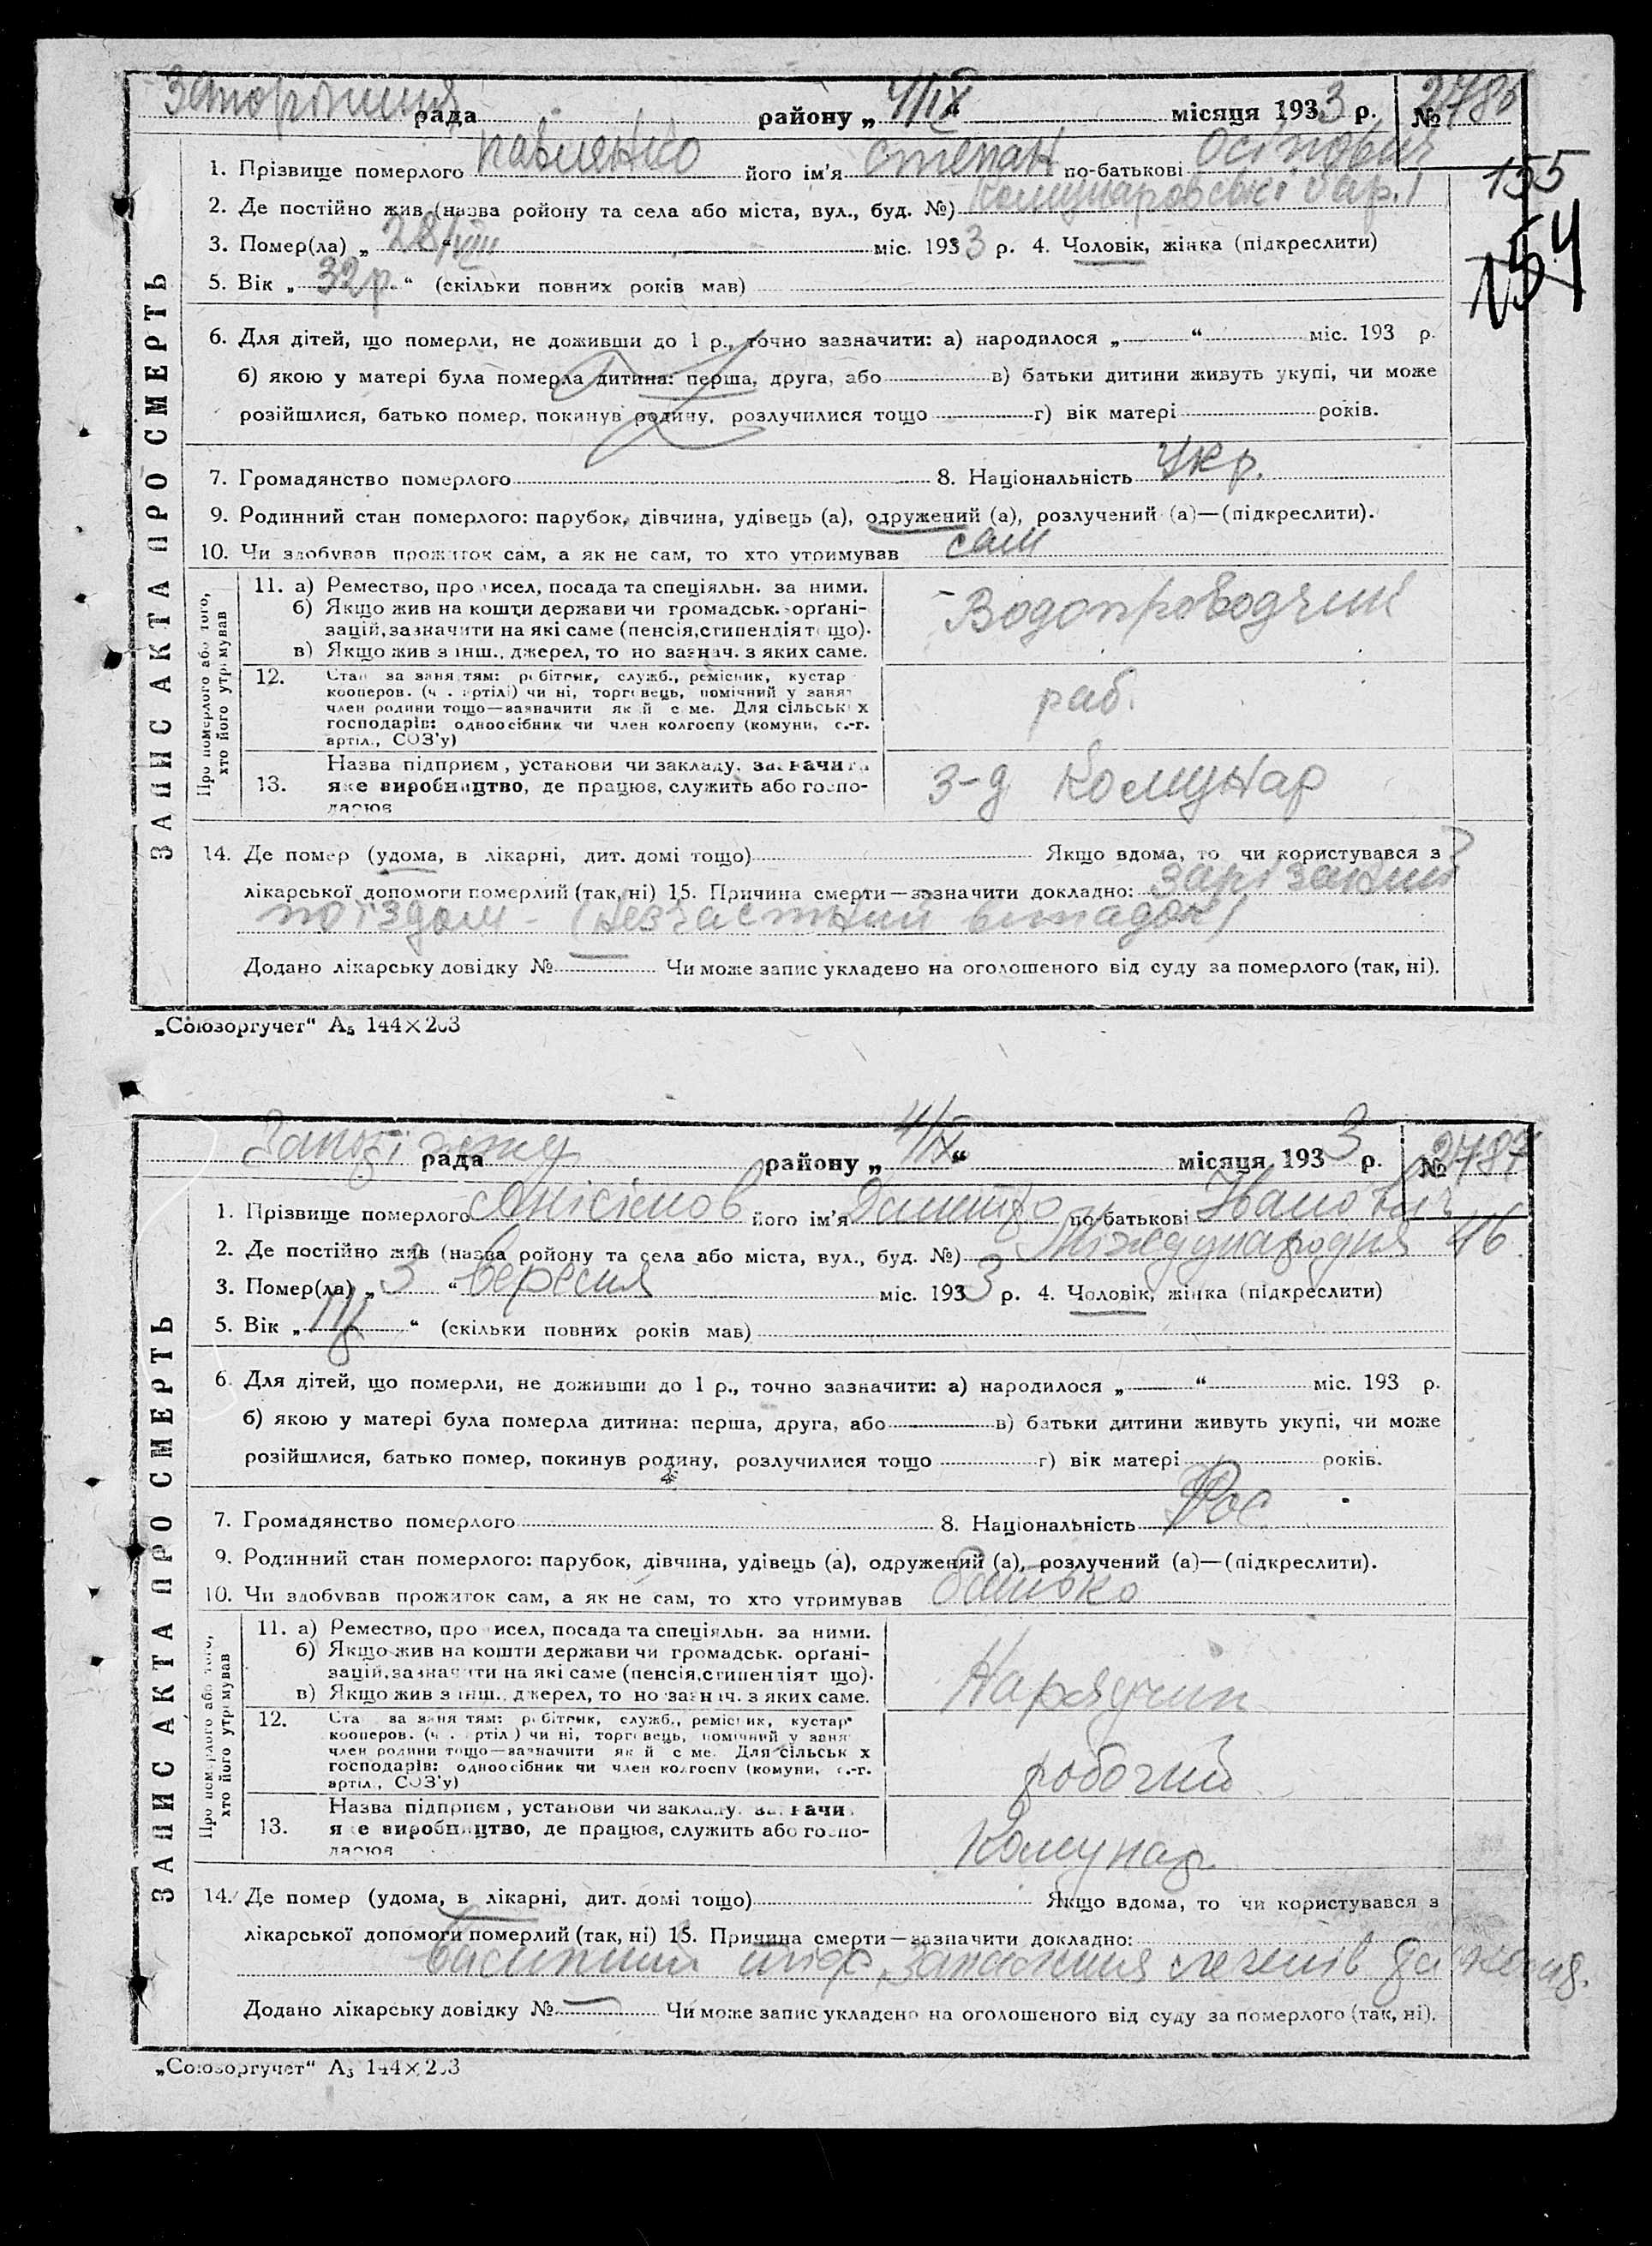 рада району „4/IX“ місяця 1933 р. №
1. Прізвище померлого Павленко його ім'я Степан по-батькові Осіпович
2. Де постійно жив (назва ройону та села або міста, вул., буд. №) Комунаровські бар.1
155
3. Помер(ла) „28/VIII“ міс. 1933 р. 4. Чоловік, жінка (підкреслити)
154
5. Вік „32р.“ (скільки повних років мав)
6. Для дітей, що померли, не доживши до 1 р., точно зазначити: а) народилося „ “ міс. 193 р.
б) якою у матері була померла дитина: перша, друга, або в) батьки дитини живуть укупі, чи може
розійшлися, батько помер, покинув родину, розлучилися тощо г) вік матері років.
7. Громадянство померлого 8. Національність Укр.
9. Родинний стан померлого: парубок, дівчина, удівець (а), одружений (а), розлучений (а)—(підкреслити).
10. Чи здобував прожиток сам, а як не сам, то хто утримував сам
ЗАПИС АКТА ПРО СМЕРТЬ
Про померлого або того, хто його утримував
11. а) Ремество, промисел, посада та спеціяльн. за ними.
б) Якщо жив на кошти держави чи громадськ. орґані-
зацій, зазначити на які саме (пенсія, стипендія тощо).
в) Якщо жив з інш. джерел, то но зазнач. з яких саме.
Водопроводчик
12. Стан за заняттям: робітник, служб., ремісник, кустар
кооперов. (ч. артілі) чи ні, торговець, помічний у занят
член родини тощо—зазначити який саме. Для сільських
господарів: одноосібник чи член колгоспу (комуни, с.-г.
артіл., СОЗ'у)
раб.
13. Назва підприєм, установи чи закладу. зазначити
яке виробництво, де працює, служить або госпо-
дарює
з-д Комунар
14. Де помер (удома, в лікарні, дит. домі тощо) Якщо вдома, то чи користувався з
лікарської допомоги померлий (так, ні) 15. Причина смерти—зазначити докладно: зарізаний
поїздом - (незчастний випадок)
Додано лікарську довідку № Чи може запис укладено на оголошеного від суду за померлого (так, ні).
„Союзоргучет“ А5 144×203
рада району „4/IX“ місяця 1933 р. № 2787
1. Прізвище померлого Анісімов його ім'я Дмитро по-батькові Іванович
2. Де постійно жив (назва ройону та села або міста, вул., буд. №) Міждународня 46
3. Помер(ла) „3“ вересня міс. 1933 р. 4. Чоловік, жінка (підкреслити)
5. Вік „ “ (скільки повних років мав)
6. Для дітей, що померли, не доживши до 1 р., точно зазначити: а) народилося „ “ міс. 193 р.
б) якою у матері була померла дитина: перша, друга, або в) батьки дитини живуть укупі, чи може
розійшлися, батько помер, покинув родину, розлучилися тощо г) вік матері років.
7. Громадянство померлого 8. Національність Рос
9. Родинний стан померлого: парубок, дівчина, удівець (а), одружений (а), розлучений (а)—(підкреслити).
10. Чи здобував прожиток сам, а як не сам, то хто утримував батько
ЗАПИС АКТА ПРО СМЕРТЬ
Про померлого або того, хто його утримував
11. а) Ремество, промисел, посада та спеціяльн. за ними.
б) Якщо жив на кошти держави чи громадськ. орґані-
зацій, зазначити на які саме (пенсія, стипендія тощо).
в) Якщо жив з інш. джерел, то но зазнач. з яких саме.
Нарядчик
12. Стан за заняттям: робітник, служб., ремісник, кустар
кооперов. (ч. артіл) чи ні, торговець, помічний у заня
член родини тощо—зазначити який саме. Для сільських
господарів: одноосібник чи член колгоспу (комуни, с.-г.
артіл., СОЗ'у)
робочий
13. Назва підприєм, установи чи закладу. зазначи
яке виробництво, де працює, служить або госпо-
дарює
Комунар
14. Де помер (удома, в лікарні, дит. домі тощо) Якщо вдома, то чи користувався з
лікарської допомоги померлий (так, ні) 15. Причина смерти—зазначити докладно:
висипний тиф, запалення легенів
Додано лікарську довідку № — Чи може запис укладено на оголошеного від суду за померлого (так, ні).
„Союзоргучет“ А5 144×203